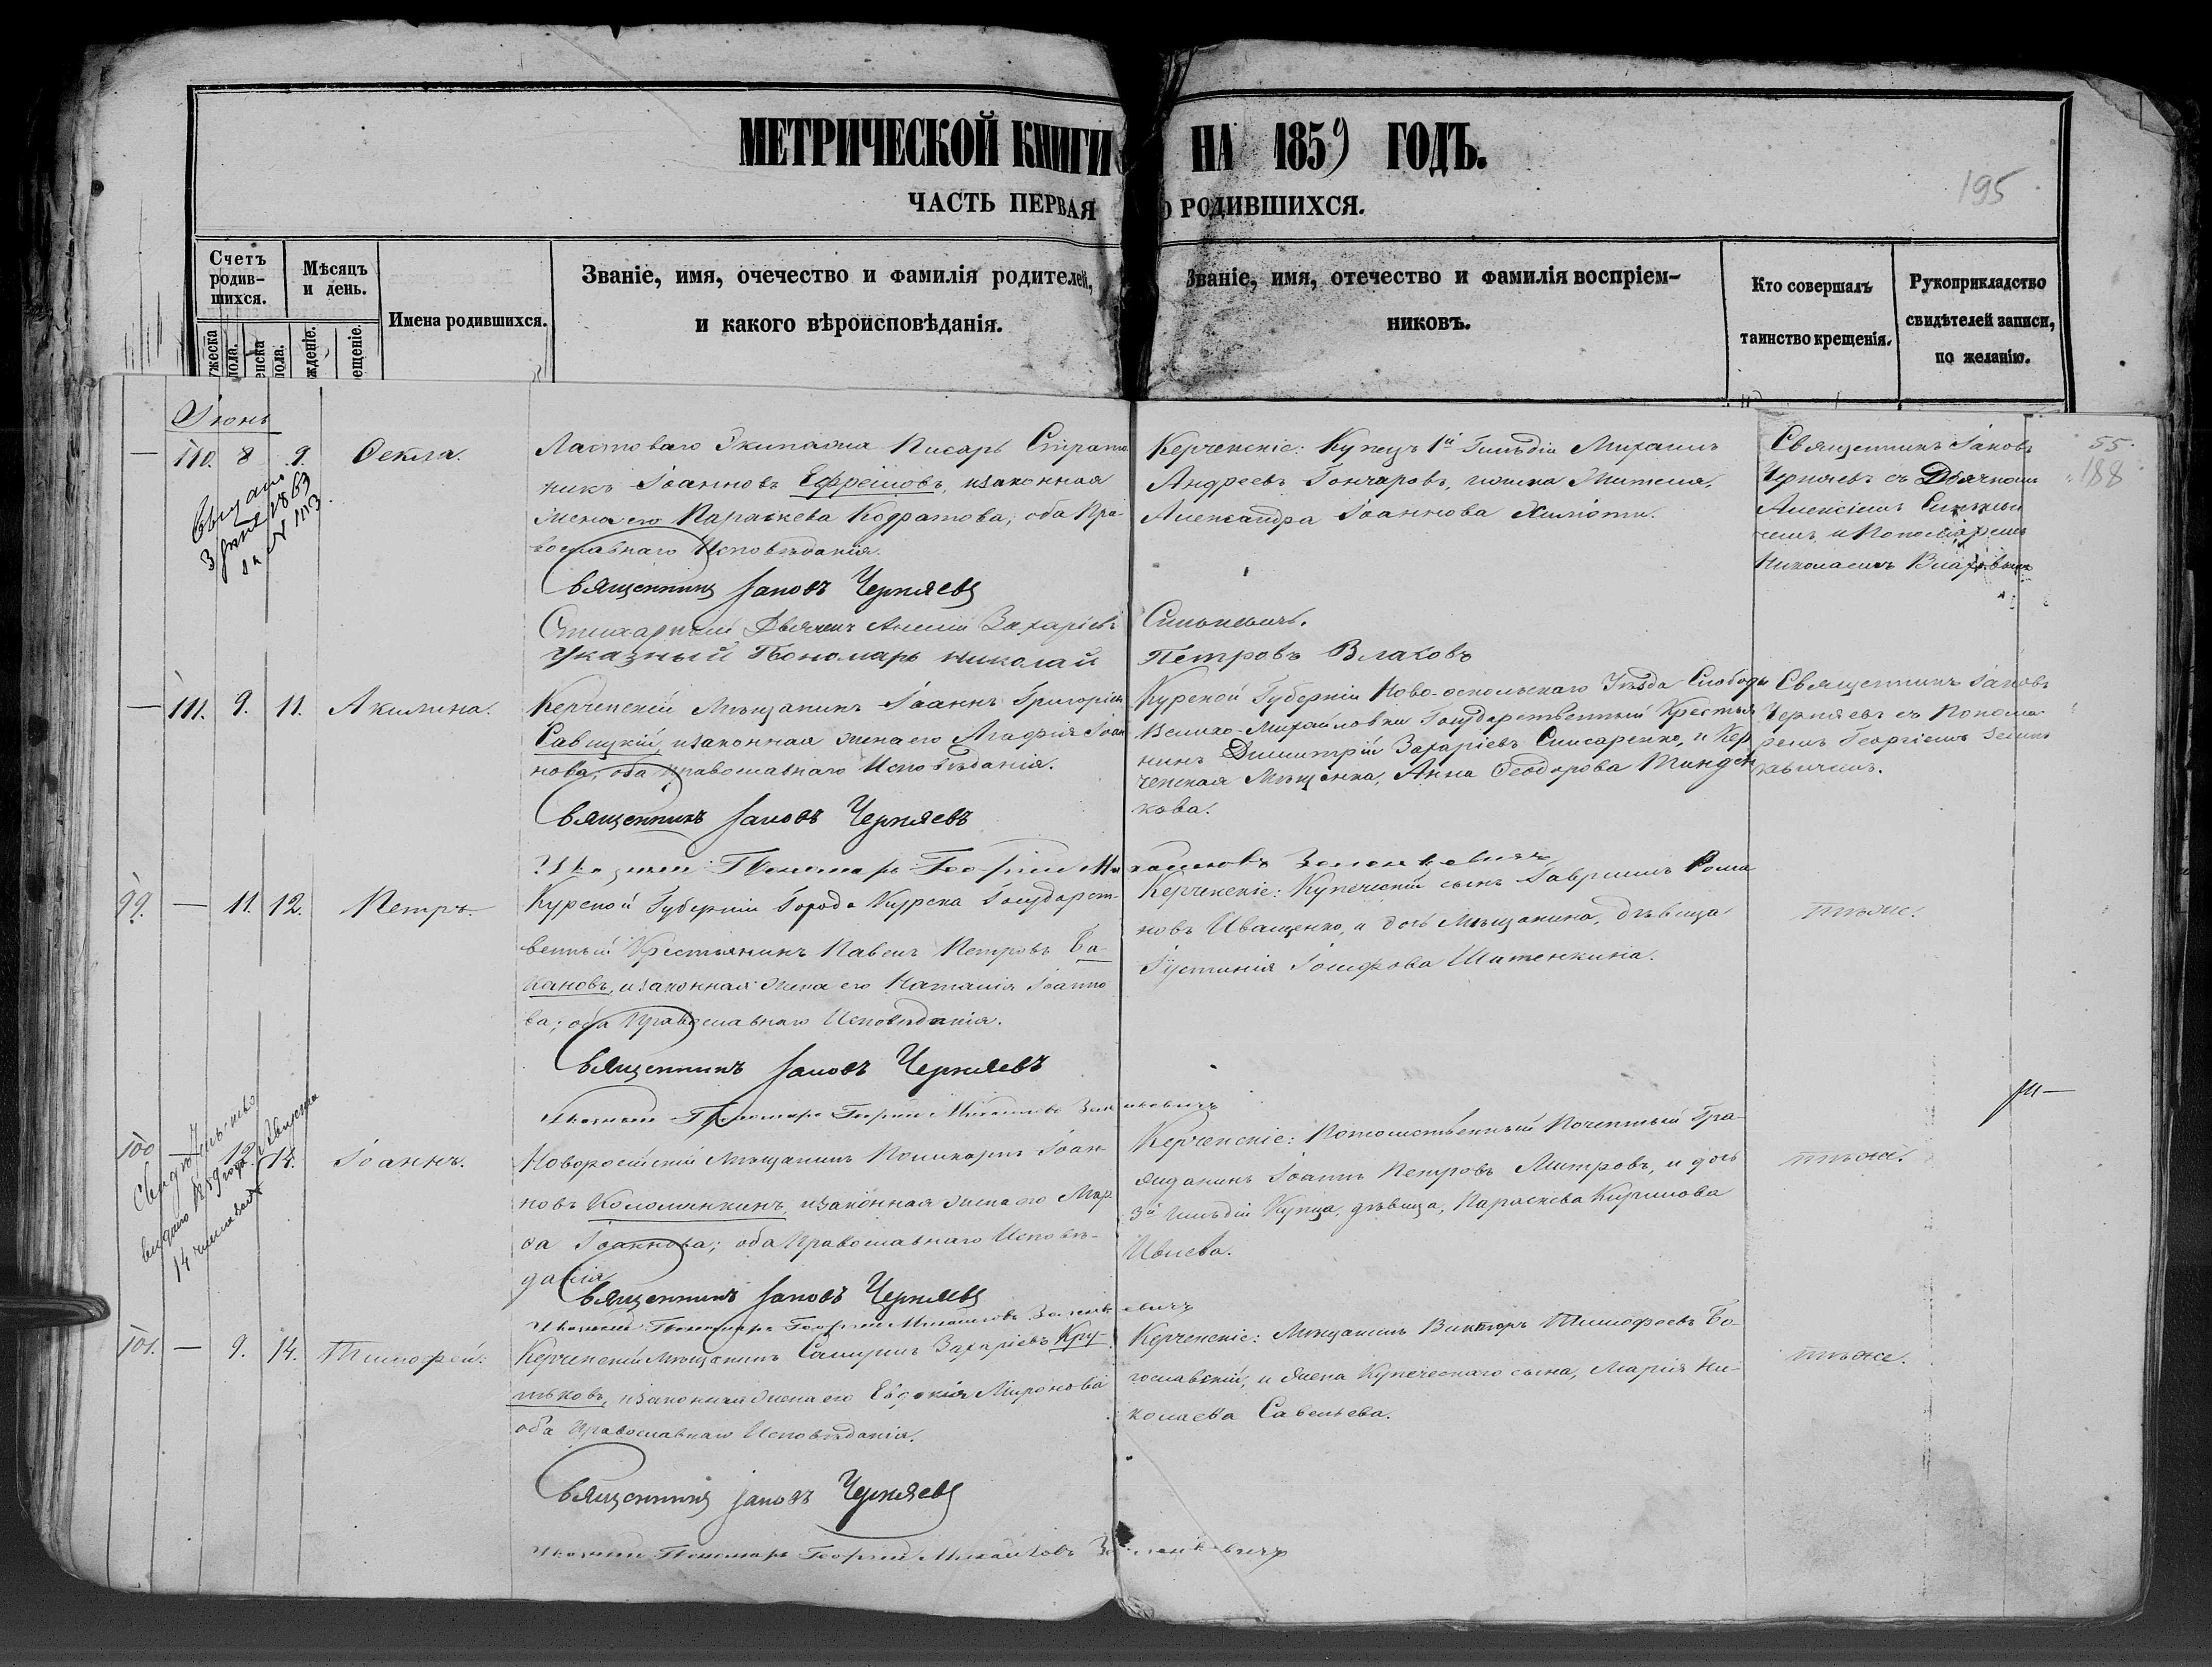 МЕТРИЧЕСКОЙ КНИГИ НА 1859 ГОДЪ.
ЧАСТЬ ПЕРВАЯ О РОДИВШИХСЯ.
195
Счетъ родив-шихся.
Мѣсяцъ и день.
Имена родившихся.
Званіе, имя, очечество и фамилія родителей,
и какого вѣроисповѣданія.
Званіе, имя, отечество и фамилія воспріем-
никовъ.
Кто совершалъ
таинство крещенія.
Рукоприкладство
свидѣтелей записи,
по желанію.
Іюнь
— 110. 8 9. Ѳекла.
Ластоваго Экипажа Писарь Стратоникъ
Іоанновъ Ефреіновъ, и законная
жена его Параскева Кодратова; оба Пра-
вославнаго Исповѣданія.
Священникъ Іаковъ Черняевъ
Стихарный Дьячекъ Алексій Захаріевъ Синькевичъ.
Указный Пономарь Николай Петровъ Влаховъ
Керченскіе: Купецъ 1й Гильдіи Михаилъ
Андреевъ Гончаровъ,
Александра Іоаннова
Священникъ Іаковъ
Черняевъ съ Дьячкомъ
Алексіемъ
и Пономаремъ
Николаемъ Влаховымъ
55.
188
Выдано
1863
за № 1113
— 111. 9. 11. Акилина.
Керченскій Мѣщанинъ Іоаннъ Григоріевъ
Савицкій, и законная жена его Агафія Іоан-
нова, оба православнаго Исповѣданія.
Священникъ Іаковъ Черняевъ
Курской Губерніи Ново-оскольскаго Уѣзда Слободы
Велико-Михайловки Государственный Крестья-
нинъ Димитрій Захаріевъ Слисаренко, и Кер-
ченская Мѣщанка, Анна Ѳеодорова
кова.
Священникъ Іаковъ
Черняевъ съ Понома-
ремъ Георгіемъ
Указный Пономарь Георгій Михайловъ
99. — 11. 12. Петръ.
Курской Губерніи Города Курска Государст-
венный Крестьянинъ Павелъ Петровъ Ба-
кановъ, и законная жена его Наталія Іоанно-
ва; оба Православнаго Исповѣданія.
Священникъ Іаковъ Черняевъ
Указный Пономарь Георгій Михайловъ
Керченскіе: Купеческій сынъ Гавріилъ Рома-
новъ Иващенко, и дочь Мѣщанина, дѣвица
Іустинія Іосифова Шатенкина.
тѣже.
100 — 12. 14. Іоаннъ.
Свидѣтельство
выдано 1859 года Августа
14 числа
Новоросійскій Мѣщанинъ Поликарпъ Іоан-
новъ Коломинкинъ, и законная жена его Мар-
ѳа Іоаннова; оба Православнаго Исповѣ-
данія
Священникъ Іаковъ Черняевъ
Указный Пономарь Георгій Михайловъ
Керченскіе: Потомственный Почетный Гра-
жданинъ Іоаннъ Петровъ Митровъ, и дочь
3й Гильдіи Купца, дѣвица, Параскева Кирилова
Ивлева.
тѣже.
101. — 9. 14. Тимофей.
Керченскій Мѣщанинъ Самуилъ Захаріевъ Кру-
тьковъ, и законная жена его Евдокія Миронова
оба Православнаго Исповѣданія.
Священникъ Іаковъ Черняевъ
Указный Пономарь Георгій Михайловъ
Керченскіе: Мѣщанинъ Викторъ Тимофеевъ Бо-
гославскій, и жена Купеческаго сына, Марія Ни-
колаева Савельева.
тѣже.